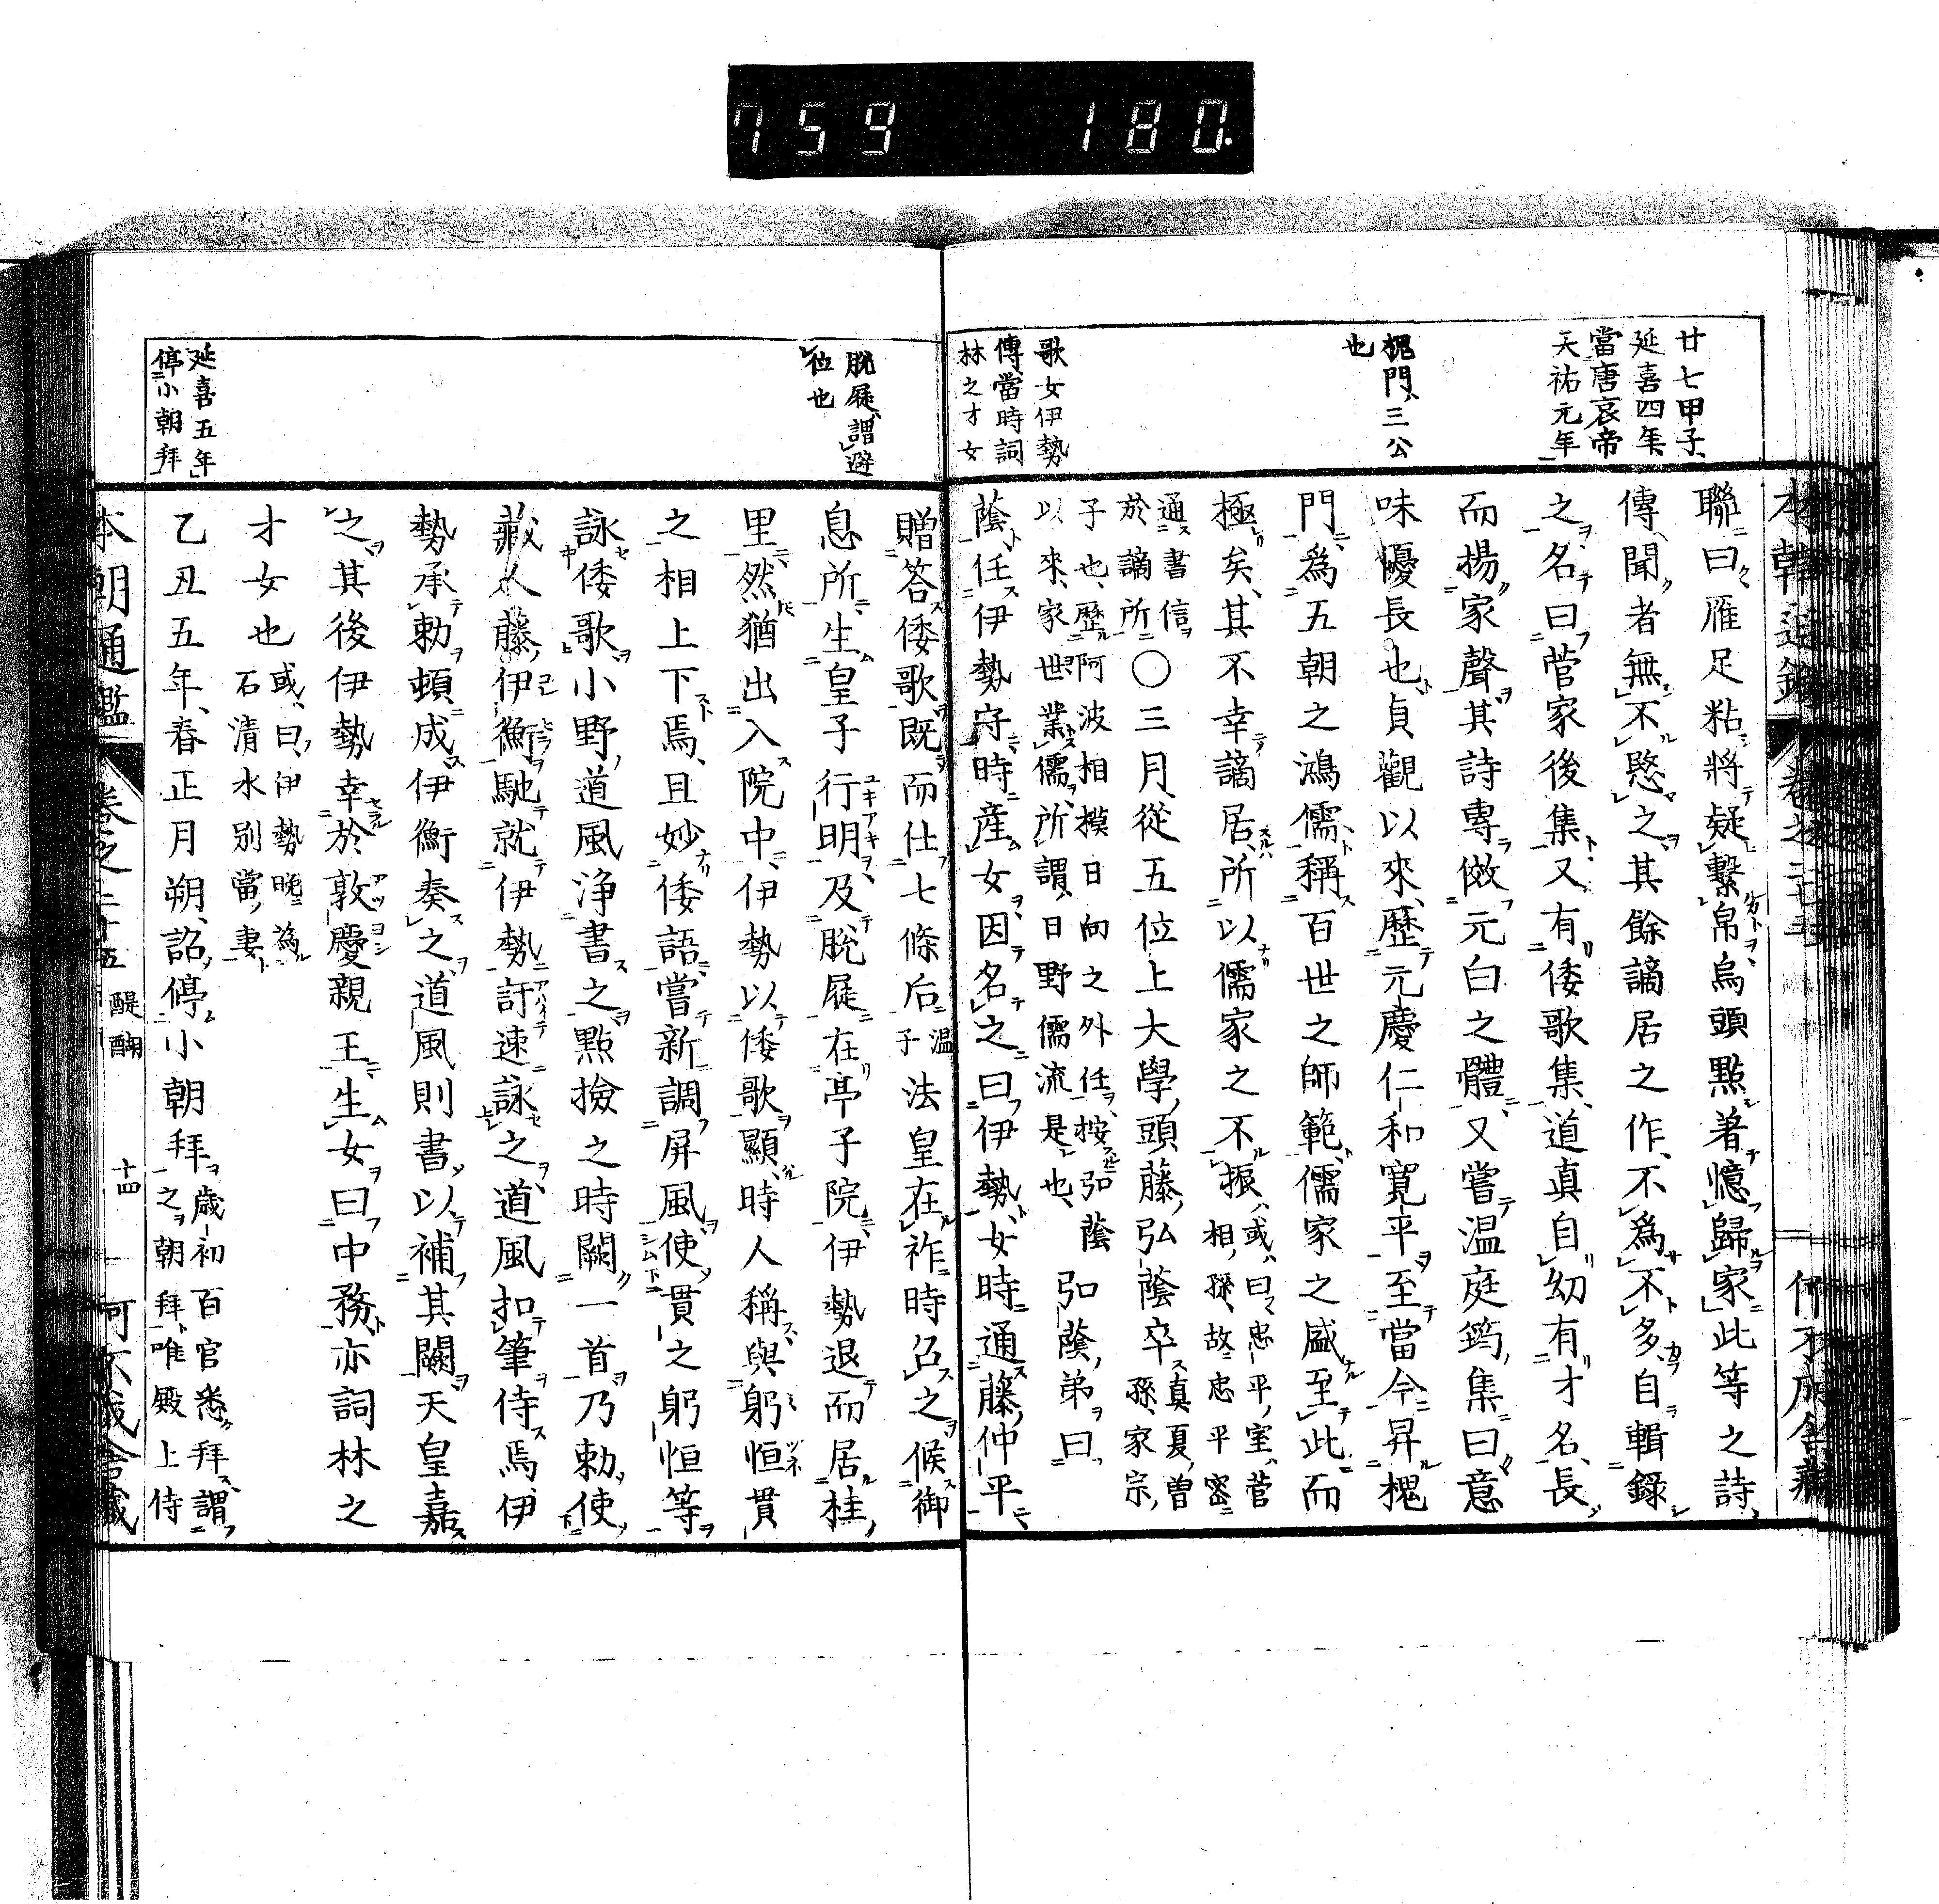 759 180
廿七甲子
延喜四年
當唐哀帝
天祐元年
槐門三公
也
歌女伊勢
傳當時詞
林之才女
聯曰雁足粘將疑繫帛烏頭點著憶歸家此等之詩
傳聞者無不愍之其餘謫居之作不爲不多自輯錄
之名曰菅家後集又有倭歌集道真自幼有才名長
而揚家聲其詩專傚元白之體又嘗溫庭筠集曰意
味優長也貞觀以來歷元慶仁和寬平至當今昇槐
門爲五朝之鴻儒稱百世之師範儒家之盛至此而
極矣其不幸謫居所以儒家之不振或曰忠平室菅
相孫故忠平密
通書信
於謫所〇三月從五位上大學頭藤弘蔭卒真夏曽
孫家宗
子也歷阿波相摸日向之外任按弘蔭
以來家世業儒所謂日野儒流是也弘蔭弟曰
蔭任伊勢守時產女因名之曰伊勢女時通藤仲平
脫屣謂避
位也
延喜五年
停小朝拜
贈答倭歌既而仕七條后溫
子法皇在祚時召之候御
息所生皇子行明及脫屣在亭子院伊勢退而居桂
里然猶出入院中伊勢以倭歌顯時人稱與躬恒貫
之相上下焉且妙倭語嘗新調屏風使貫之躬恒等
詠倭歌小野道風淨書之點撿之時闕一首乃勅使
藏人藤伊衡馳就伊勢許速詠之道風扣筆侍焉伊
勢承勅頓成伊衡奏之道風則書以補其闕天皇嘉
之其後伊勢幸於敦慶親王生女曰中務亦詞林之
才女也或曰伊勢晚為
石清水別當妻
乙丑五年春正月朔詔停小朝拜歲初百官悉拜謂
之朝拜唯殿上侍
本朝通鑑 卷之二十五 醍醐 十四